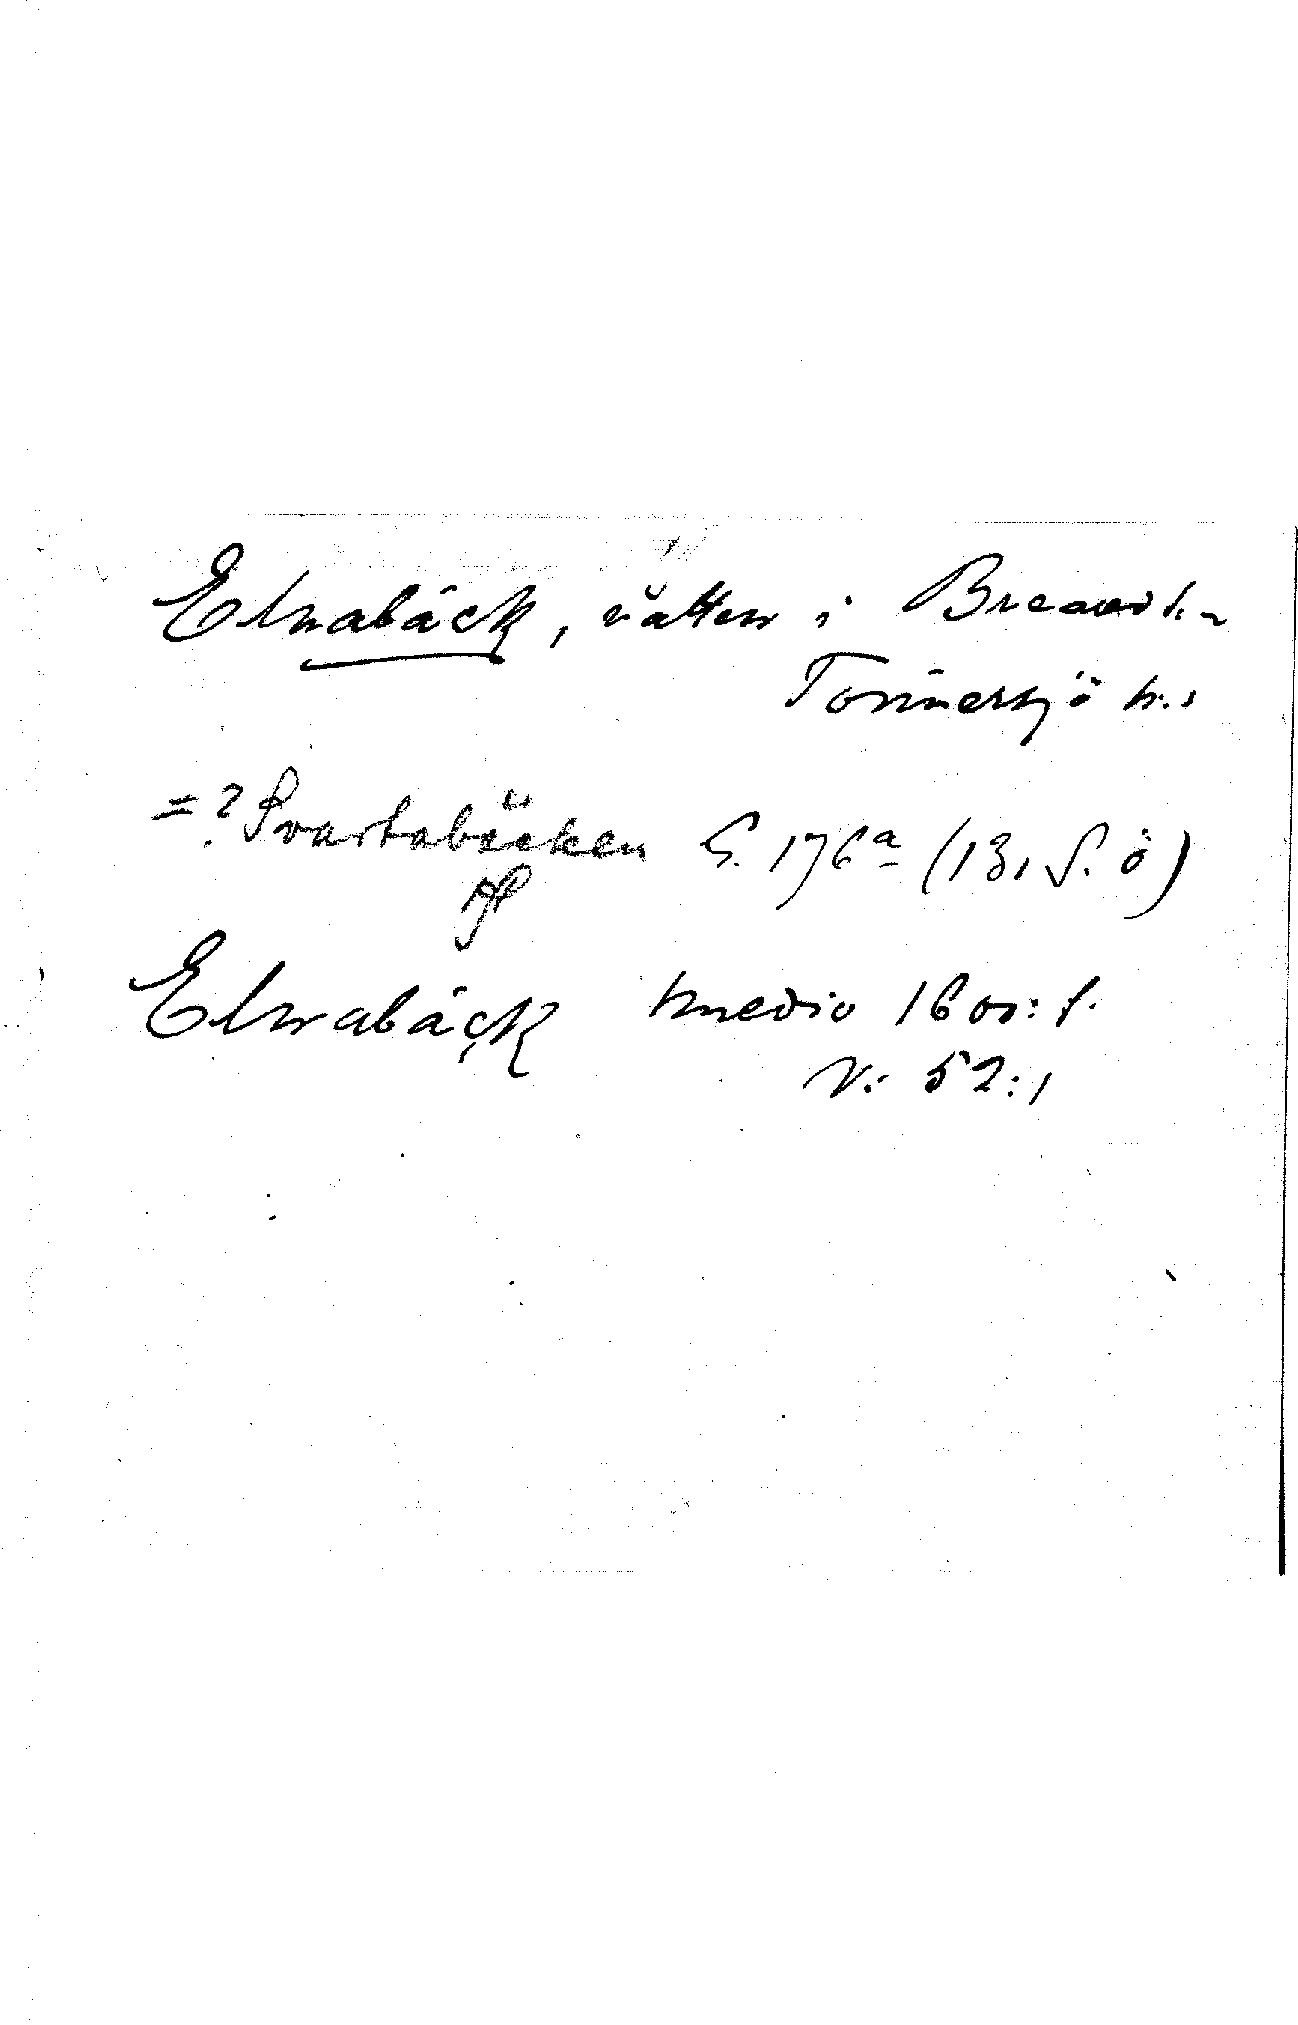 Elnabäck, vatten i Breared sn
Tönnersjö h.,
=? Svartabäcken G. 176a (13, S. ö)
Elnabäck medio 1600: t.
V: 52:1